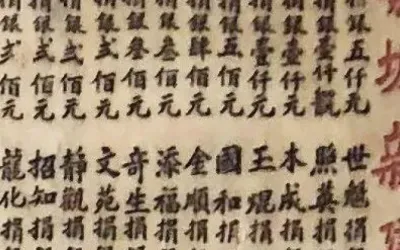 坊
捐銀五仟元
捐銀壹仟
捐銀壹仟元
捐銀壹仟元
捐銀五佰元
捐銀肆佰元
捐銀叁佰元
捐銀叁佰元
捐銀弍佰元
捐銀弍佰元
捐銀弍佰元
捐銀弍佰元
世魁捐
照英捐
木成捐
王琨捐
國和捐
金順捐
添福捐
奇生捐
文苑捐
靜觀捐
招知捐
龍化捐